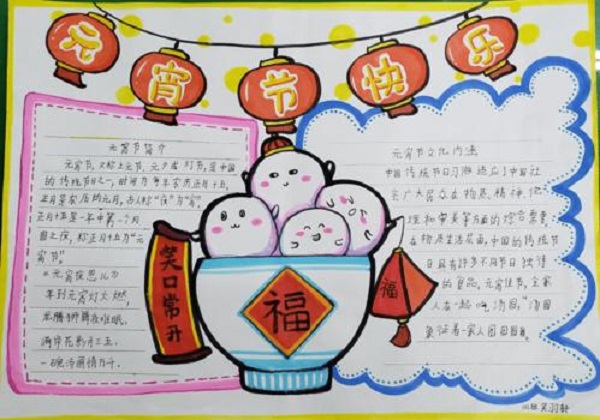 元宵节快乐
元宵节简介
元宵节,又称上元节、元夕或灯节,是中国
的传统节日之一,时间为每年农历正月十五,
正月是农历的元月,古人称“夜”为“宵”,
正月十五是一年中第一个月
圆之夜,称正月十五为“元
宵节”。
《元宵夜思儿》
年到元宵灯火燃,
龙腾狮舞夜难眠。
一碗汤圆情
笑口常开
福
福
元宵节文化内涵
中国传统节日习俗适应了中国社
会广大民众在物质、精神、伦
理和审美等方面的综合需要
在物质生活层面,中国的传统节
日具有许多不同节日独特
的食品,元宵佳节,全家
人在一起吃汤圆,“汤圆
象征着一家人团团圆圆